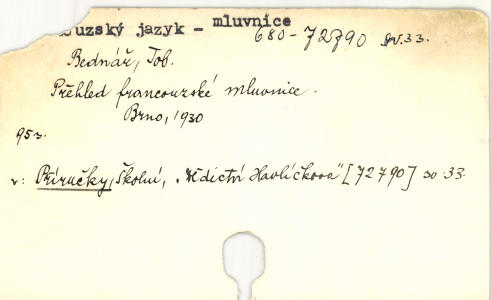 ouzský jazyk - mluvnice
680-72790 sv.33.
Bednář, Tob.
Přehled francouzské mluvnice.
Brno, 1930
95 s.
v: Příručky, Školní, „Dědictví Havlíčkova" [72790] sv 33.